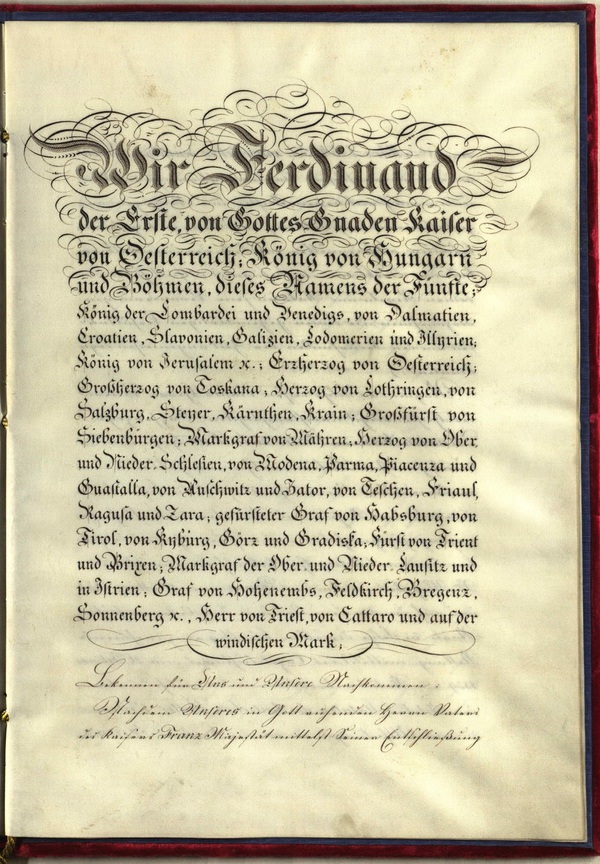 Wir Ferdinand
der Erste, von Gottes Gnaden Kaiser
von Oesterreich; König von Hungarn
und Böhmen, dieses Namens der Fünfte;
König der Lombardei und Venedigs, von Dalmatien,
Croatien, Slavonien, Galizien, Lodomerien und Illyrien;
König von Jerusalem ꝛc.; Erzherzog von Oesterreich;
Großherzog von Toskana; Herzog von Lothringen, von
Salzburg, Steyer, Kärnthen, Krain; Großfürst von
Siebenbürgen; Markgraf von Mähren; Herzog von Ober
und Nieder-Schlesien, von Modena, Parma, Piacenza und
Guastalla, von Auschwitz und Zator, von Teschen, Friaul,
Ragusa und Zara; gefürsteter Graf von Habsburg, von
Tirol, von Kyburg, Görz und Gradiska; Fürst von Trient
und Brixen; Markgraf der Ober- und Nieder-Lausitz und
in Istrien; Graf von Hohenembs, Feldkirch, Bregenz,
Sonnenberg ꝛc., Herr von Triest, von Cattaro und auf der
windischen Mark;
Bekennen für Uns und Unsere Nachkommen:
Nachdem Unseres in Gott ruhenden Herrn Vaters
des Kaisers Franz Majestät mittelst Seiner Entschließung